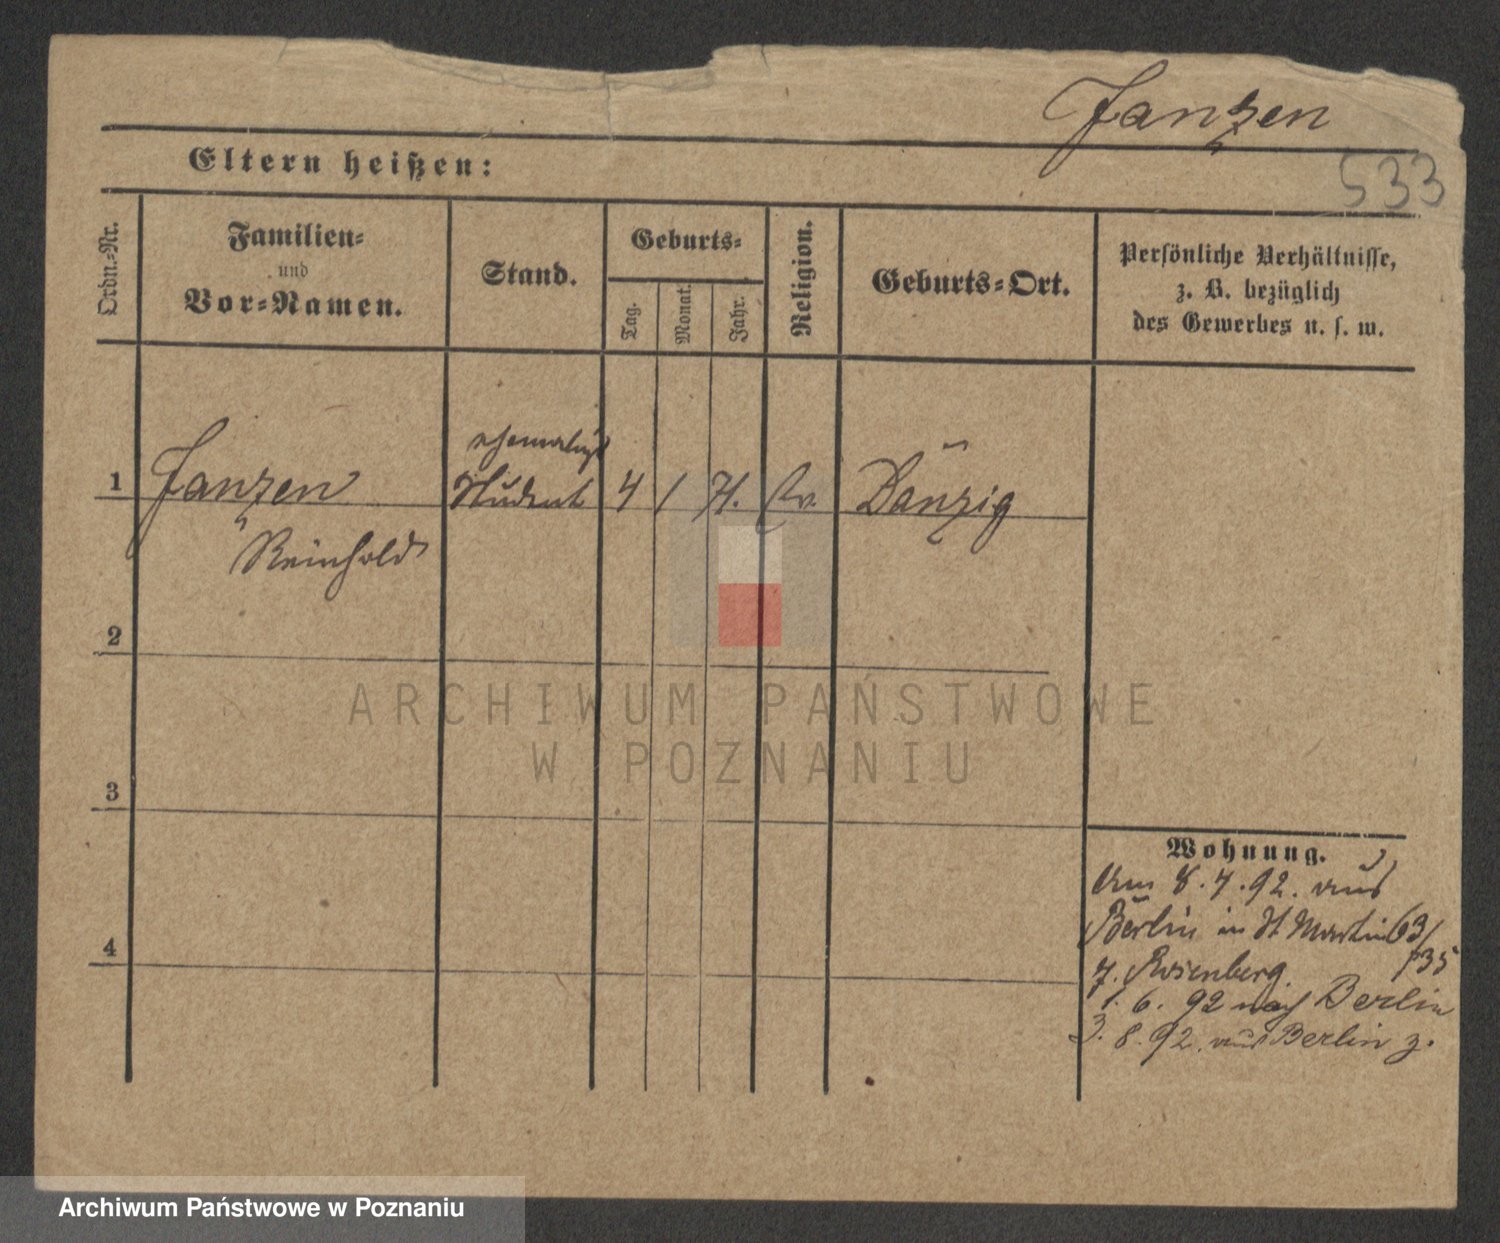 Janzen
533
Eltern heißen:
Ordn.-Nr.
Familien-
und
Vor-Namen.
Stand.
Geburts-
Tag.
Monat.
Jahr.
Religion.
Geburts-Ort.
Persönliche Verhältnisse,
z. B. bezüglich
des Gewerbes u. s. w.
ehemalig
1 Janzen Student 4 / 71. Ev. Danzig
Reinhold
2
3
4
Wohnung.
Am 8. 4. 92. aus
Berlin in St Martin 63/
735
Rosenberg.
1. 6. 92 nach Berlin
3. 8. 92. aus Berlin z.
ARCHIWUM PAŃSTWOWE
W POZNANIU
Archiwum Państwowe w Poznaniu